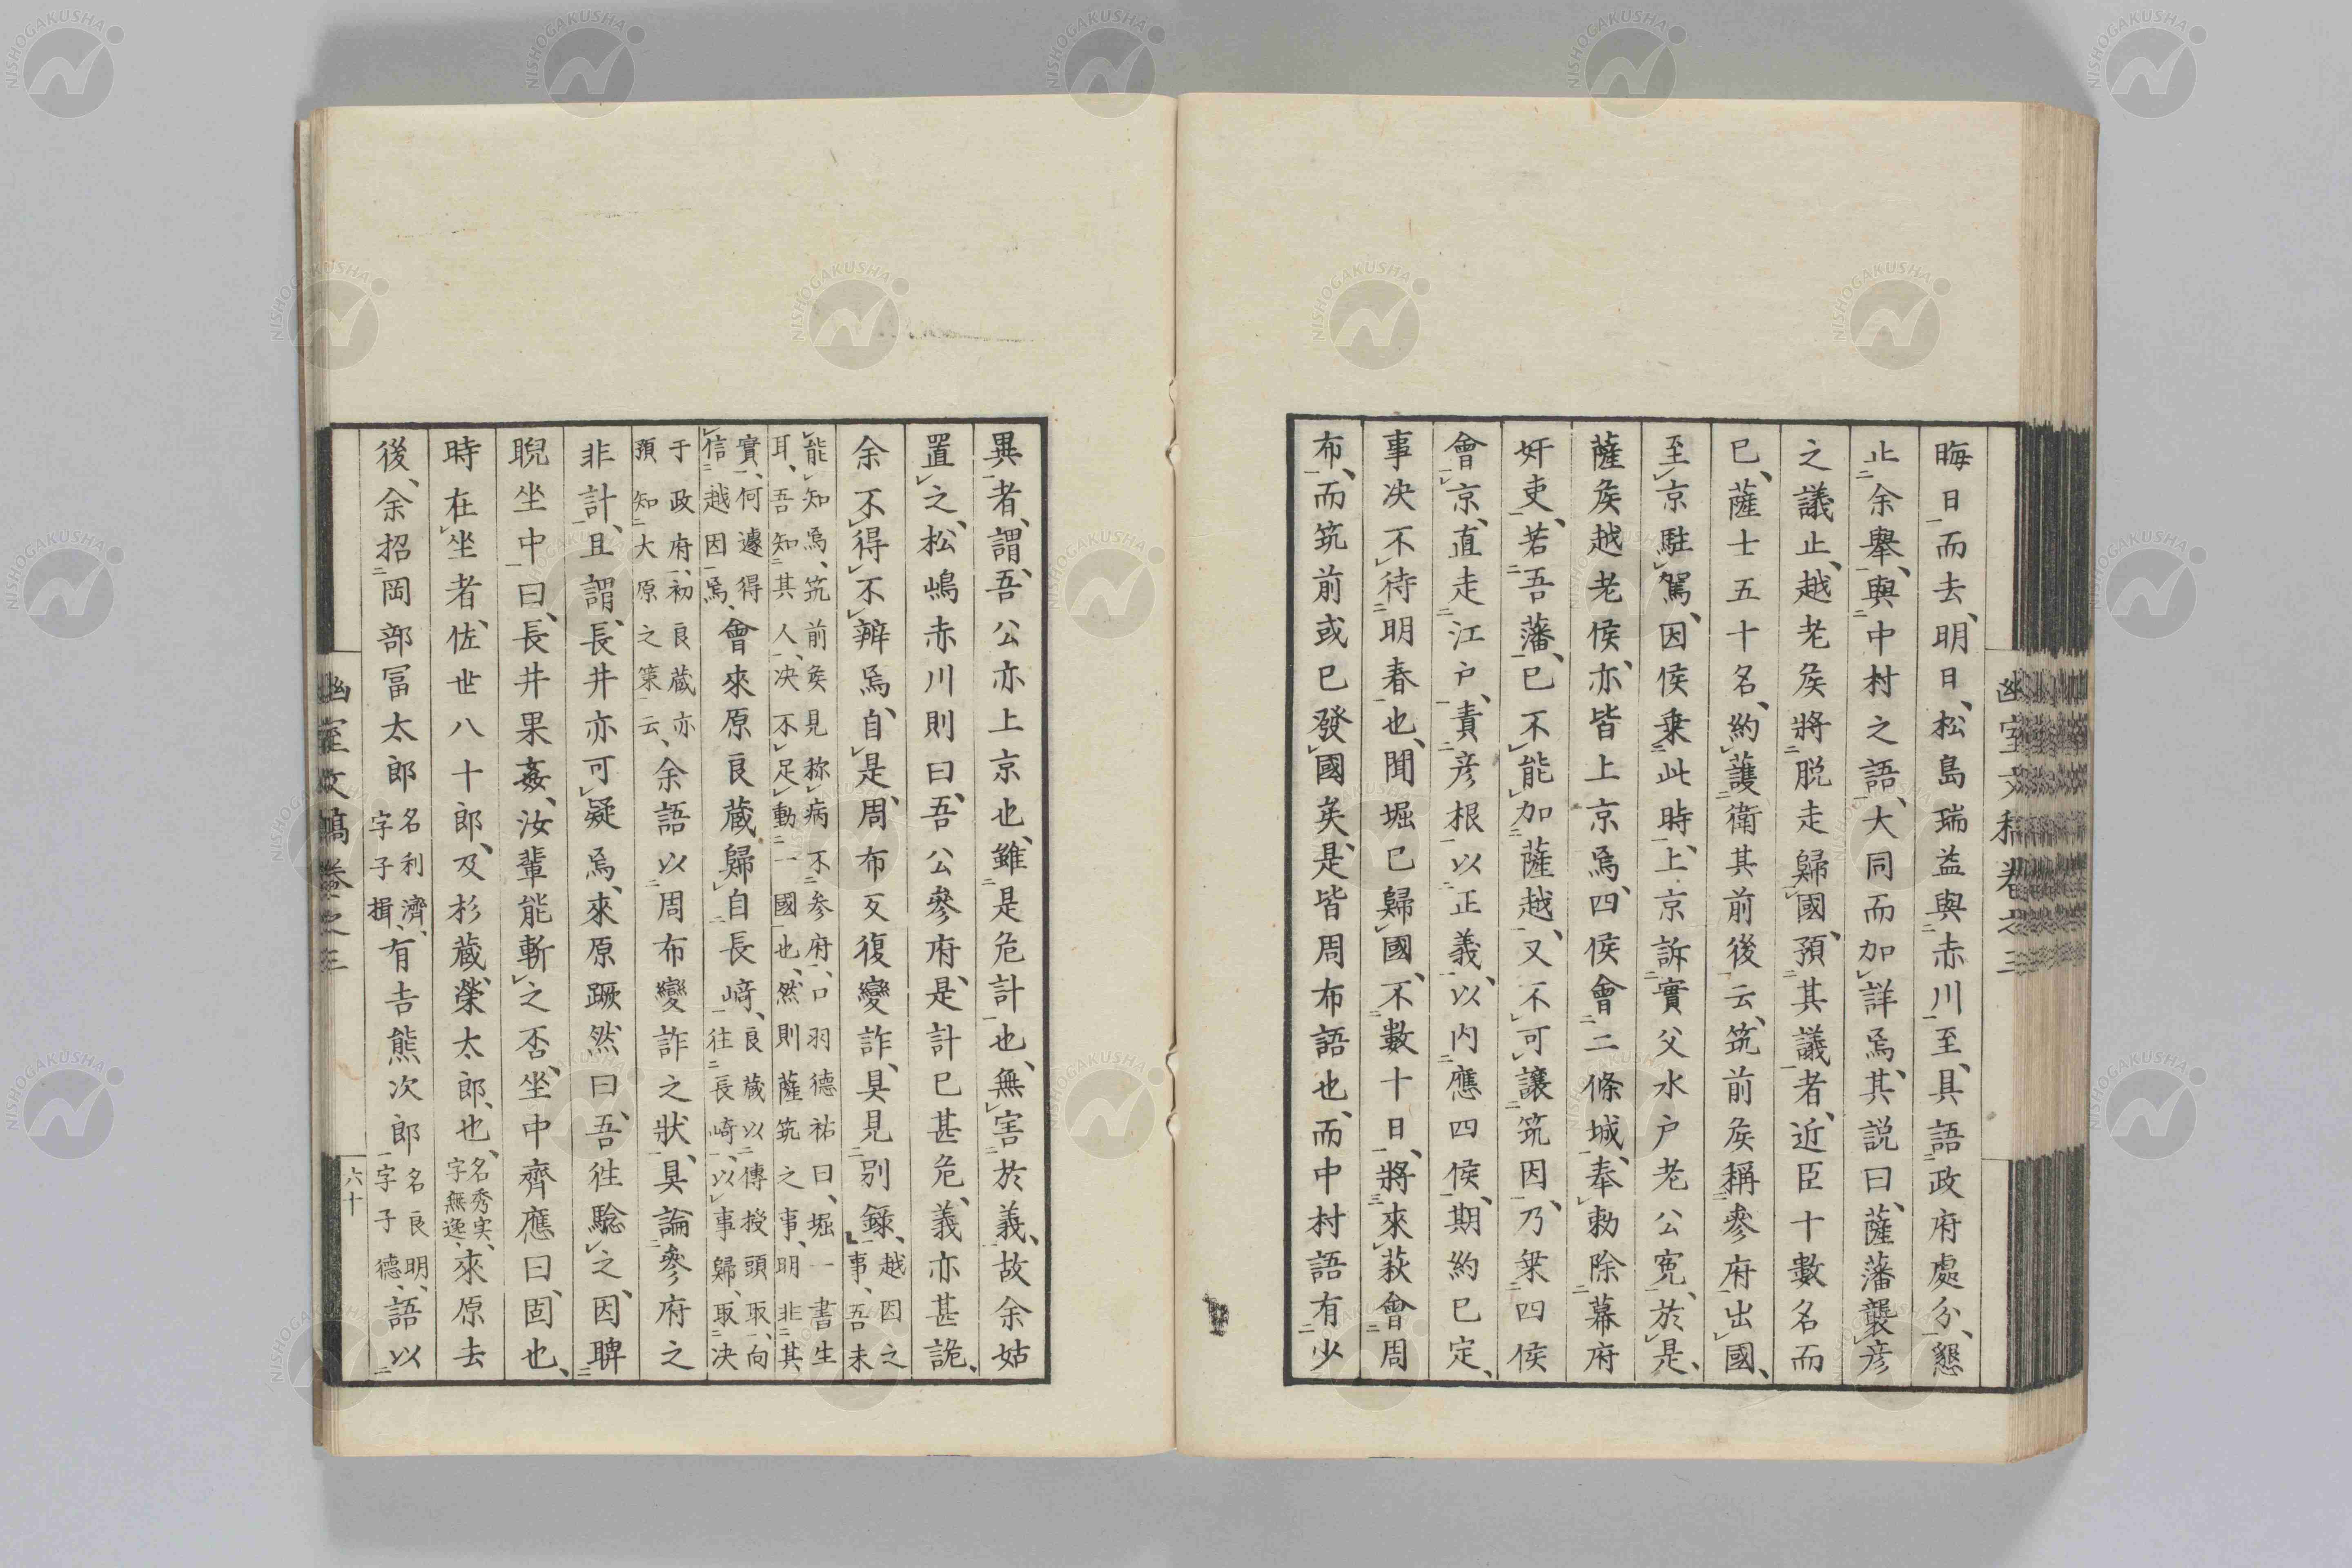 晦日而去、明日、松島瑞益與赤川至、具語政府處分、懇
止余舉、與中村之語、大同而加詳焉、其説曰、薩藩襲彦
之議止、越老矦將脱走歸國、預其議者、近臣十數名而
已、薩士五十名、約護衛其前後云、筑前矦稱參府出國、
至京駐駕、因侯乗此時、上京訴實父水户老公寃、於是、
薩矦越老侯、亦皆上京焉、四侯會二條城、奉勅除幕府
奸吏、若吾藩、已不能加薩越、又不可讓筑因、乃與四侯
會京、直走江户、責彦根以正義、以内應四侯、期約已定、
事决不待明春也、聞堀已歸國、不數十日、將來萩會周
布、而筑前或已發國矣、是皆周布語也、而中村語有少
異者、謂、吾公亦上京也、雖是危計也、無害於義、故余姑
置之、松嶋赤川則曰、吾公參府、是計已甚危、義亦甚詭、
余不得不辨焉、自是、周布反復變詐、具見別録、越因之事、吾未
能知焉、筑前矦見称病不参府、口羽德祐曰、堀一書生耳、吾知其人、决不足動一國也、然則薩筑之事、明非其
實、何遽得信越因焉、會來原良藏歸自長﨑、良藏以傳授頭取、向往長崎、以事歸、取决
于政府、初良藏亦預知大原之策云、余語以周布變詐之狀、具論參府之
非計、且謂、長井亦可疑焉、來原蹶然曰、吾徃騐之、因睥
睨坐中曰、長井果姦、汝輩能斬之否、坐中齊應曰、固也、
時在坐者、佐世八十郎、及杉藏、榮太郎、也、名秀実、字無逸、來原去
後、余招岡部冨太郎名利濟、字子揖、有吉熊次郎名良明、字子德、語以
幽室文稿卷之三
六十
幽室文稿卷之三